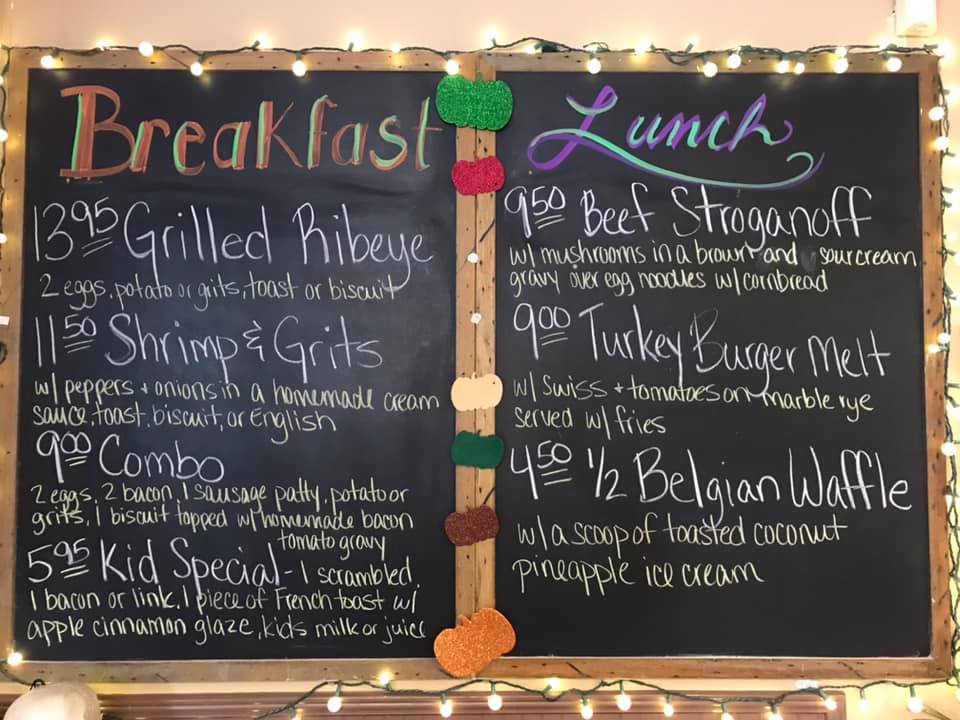 Breakfast
13.95 Grilled Ribeye
2 eggs, potato or grits, toast or biscuit
11.50 Shrimp & Grits
w/ peppers + onions in a homemade cream
sauce, toast, biscuit, or English
9.00 Combo
2 eggs, 2 bacon, 1 sausage patty, potato or
grits, 1 biscuit topped w/ homemade bacon
tomato gravy
5.95 Kid Special - 1 scrambled
1 bacon or link, 1 piece of French toast w/
apple cinnamon glaze, kids milk or juice
Lunch
9.50 Beef Stroganoff
w/ mushrooms in a brown and sour cream
gravy over egg noodles w/ cornbread
9.00 Turkey Burger Melt
w/ Swiss + tomatoes on marble rye
served w/ fries
4.50 1/2 Belgian Waffle
w/ a scoop of toasted coconut
pineapple ice cream